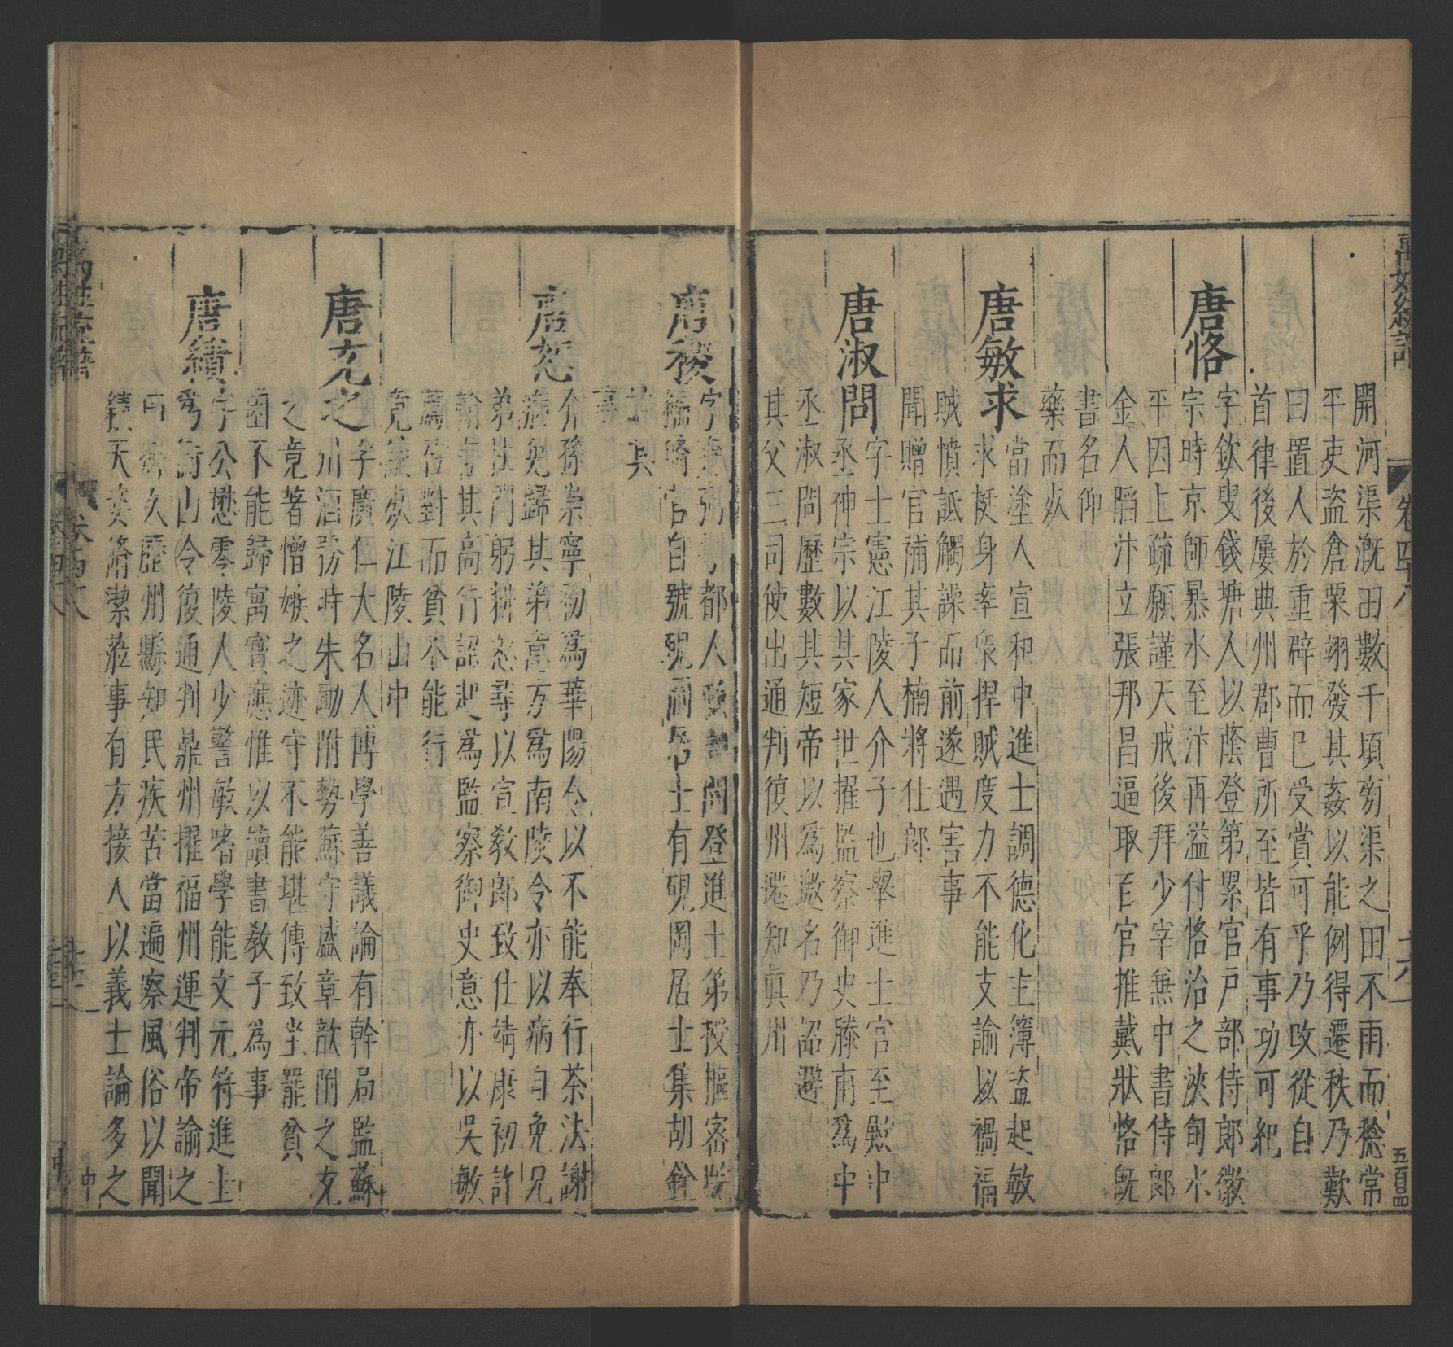 萬姓統譜
卷四十八
十六
開河渠漑田數千頃旁渠之田不雨而稔常
平吏盗倉粟翊發其姦以能例得遷秩乃歎
曰置人於重辟而已受賞可乎乃攻從自
首律後屢典州郡曹所至皆有事功可紀
唐恪
字欽叟錢塘人以蔭登第累官戸部侍郎徽
宗時京師暴水至汴再溢付恪治之浹旬水
平因上疏願謹天戒後拜少宰無中書侍郎
金人䧟汴立張邦昌逼取百官推戴狀恪旣
書名仰
藥而死
唐敏求
當塗人宣和中進士調德化主簿盗起敏
求挺身率衆捍賊度力不能支諭以禍福
賊憤詆觸譟而前遂遇害事
聞贈官補其子楠將仕郎
唐淑問
字士憲江陵人介子也舉進士官至殿中
丞神宗以其家世擢監察御史滕甫爲中
丞淑問歷數其短帝以爲邀名乃詔避
其父三司使出通判復州遷知眞州
唐稷
字 人 登進士第授樞密院
官自號硯岡居士有硯岡居士集胡銓
其
事
唐恕
介孫崇寧初爲華陽令以不能奉行茶法謝
病免歸其弟意方爲南陵令亦以病自免兄
弟杜門躬耕恕尋以宣敎郎致仕靖康初許
翰言其高行詔起爲監察御史意亦以吳敏
薦召對而貧不能行
竟 死江陵山中
唐充之
字廣仁大名人博學善議論有幹局監蘇
州酒務時朱勔附勢蘇守盛章歆附之充
之竟著憎嫉之迹守不能堪傳致坐罷貧
困不能歸寓 應惟以讀書敎子為事
唐績
字公懋零陵人少警敏嗜學能文元符進士
爲衡山令復通判鼎州擢福州運判帝諭之
曰 久歷州縣知民疾苦當遍察風俗以聞
績天姿清潔蒞事有方接人以義士論多之